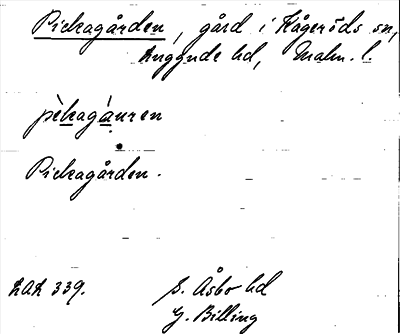 Pickagården, gård i Kågeröds sn,
Luggude hd, Malm. l.
pèkagáuren
Pickagården.
LAL 339.
S. Åsbo hd
G. Billing